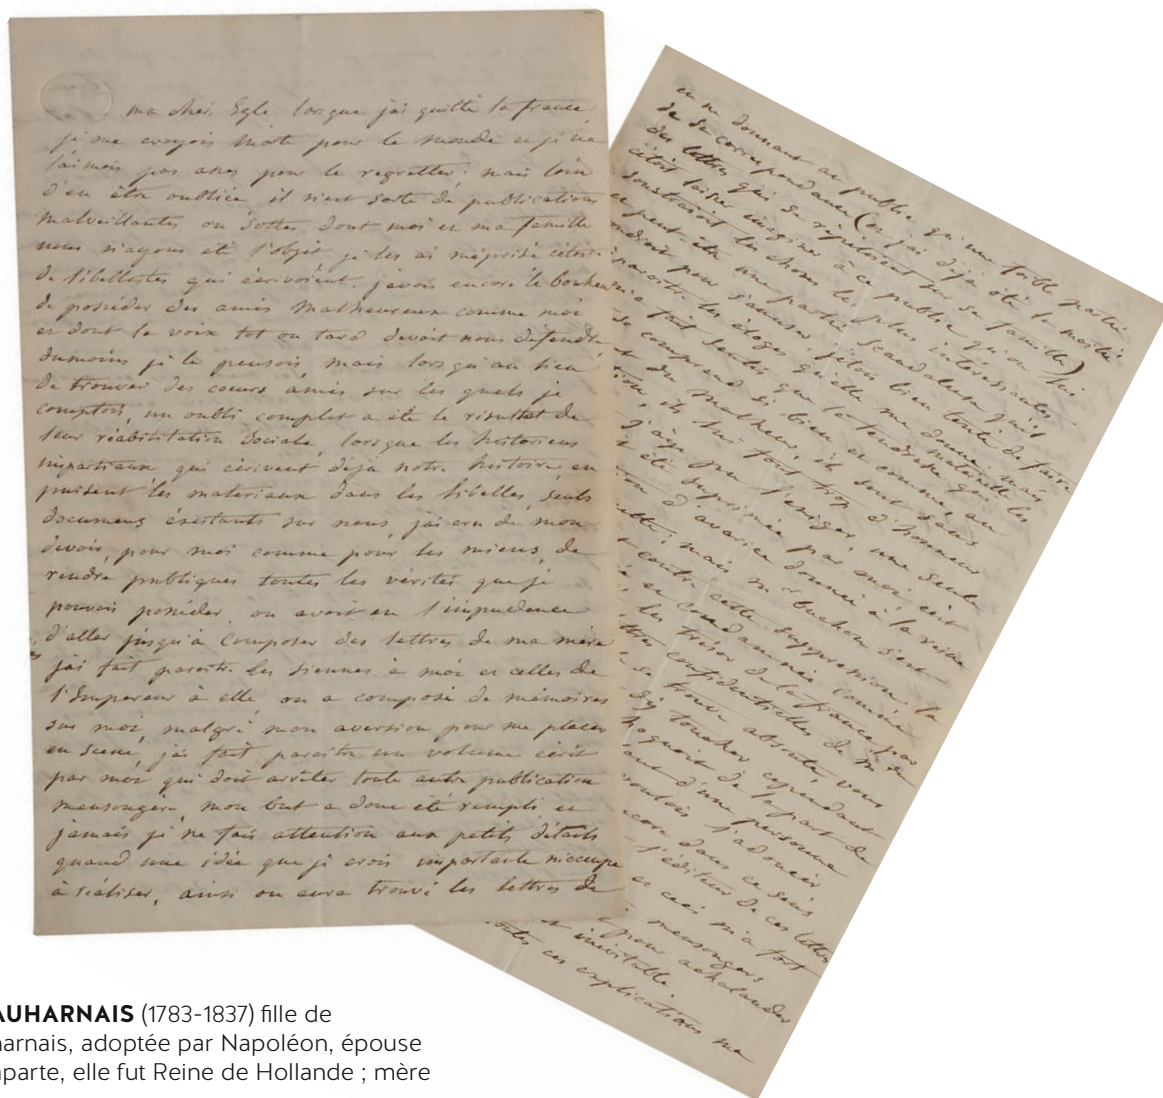 ma cher Egle lorsque j'ai quitté la france
je me croyois morte pour le monde et je ne
l'aimois pas assez pour le regretter. mais loin
d'en être oubliée il n'est sorte de publications
malveillantes ou sottes dont moi et ma famille
nous n'ayons été l'objet je les ai méprisé c'étoit
de libellistes qui écrivoient. j'avois encore le bonheur
de posséder des amis malheureux comme moi
et dont la voix tot ou tard devoit nous defendre
dumoins je le pensois, mais lorsqu'au lieu
de trouver des coeurs amis sur les quels je
comptois, un oubli complet a été le résultat de
leur réabilitation sociale, lorsque les historiens
impartiaux qui écrivent deja notre histoire en
puisent les materiaux dans les libelles, seuls
documens éxistants sur nous, j'ai cru de mon
devoir, pour moi comme pour les miens, de
rendre publiques toutes les vérités que je
pouvois posséder, on avoit eu l'impudence
d'aller jusqu'a composer des lettres de ma mère
j'ai fait paroitre les siennes à moi et celles de
l'Empereur à elle, on a composé de mémoires
sur moi, malgré mon aversion pour me placer
en scene, j'ai fait paroitre un volume écrit
par moi qui doit arrêter toute autre publication
mensongère, mon but a donc été rempli et
jamais je ne fais attention aux petits détails
quand une idée que je crois importante m'occupe
à réaliser, ainsi on aura trouvé les lettres de
en ne donnant au public qu'une foible partie
de sa correspondance (et j'ai deja oté la moitié
des lettres qui se répétoient sur sa famille)
c'étoit laisser imaginer à ce public qu'on lui
soustrayoit les choses les plus intéressantes
et peut être une partie scandaleuse qu'il
pour s'amuser j'étois bien tentée de faire
paroitre les éloges qu'elle me donne, mais
fait sentir que la tendresse maternelle les
comprend si bien et comme, au
du malheur, il sont sans
ils lui font trop d'honneur
j'aie pu l'exiger, une seule
été suprimée par moi c'est
d'avarice donnée à la reine
mais mr buchon s'est
contre cette suppression, la
et condamnée comme
les trésor de la france par
lettres confidentielles de mr de
se trouve absoute, vous
toucher cependant
de la part de
d'une personne
voulois l'adoucir
encore dans ce sens
l'éditeur de ces lettres
et ceci m'a fort
mensongers
pour achalander
inévitable
toutes ces explications ma
AUHARNAIS (1783-1837) fille de
harnais, adoptée par Napoléon, épouse
naparte, elle fut Reine de Hollande ; mère